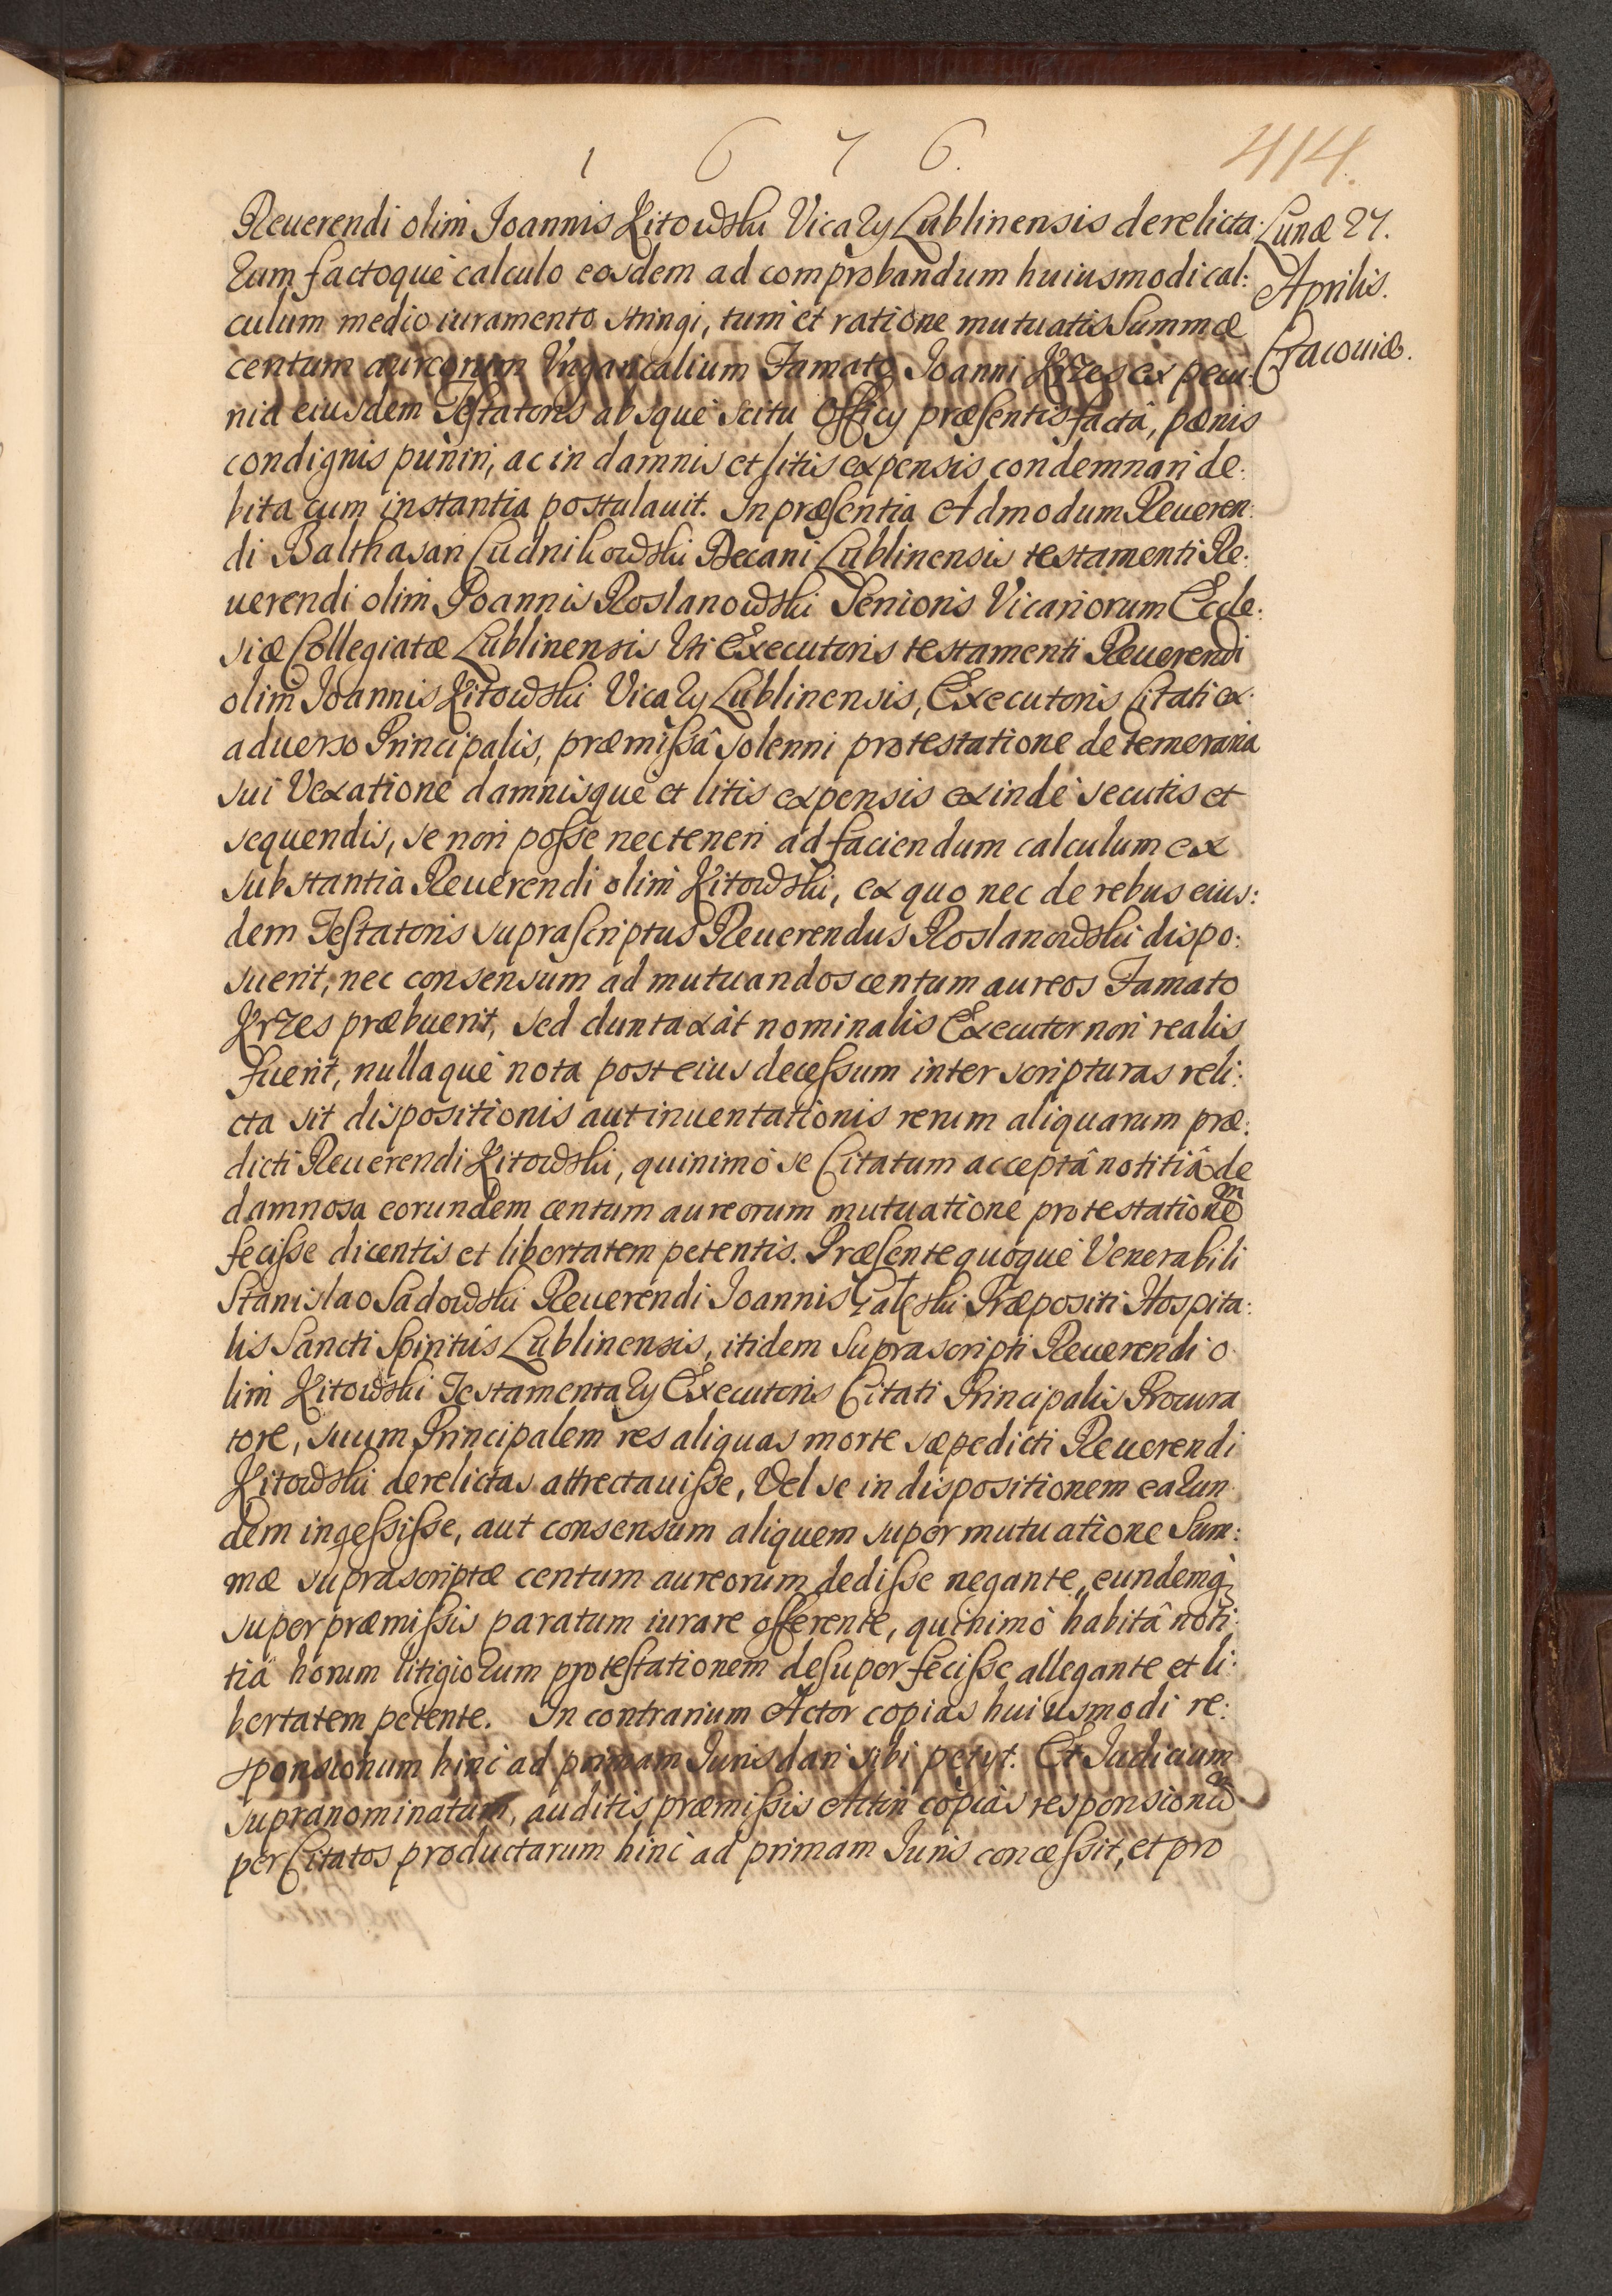 1 6 7 6.
414.
Reuerendi olim Joannis Kitowski Vicarÿ Lublinensis derelicta:
rum factoque calculo eosdem ad comprobandum huiusmodi cal:
culum medio iuramento stringi, tum et ratione mutuatis Summæ
centum aureorum Vngaricalium Famato Joanni Krzes ex pecu:
nia eiusdem Testatoris absque scitu Officÿ præsentis facta, pœnis
condignis puniri, ac in damnis et litis expensis condemnari de:
bita cum instantia postulauit. In præsentia Admodum Reueren:
di Balthasari Cudnikowski Decani Lublinensis testamenti Re:
uerendi olim Joannis Roslanowski Senioris Vicariorum Eccle:
siæ Collegiatæ Lublinensis Vti Executoris testamenti Reuerendi
olim Joannis Kitowski Vicarÿ Lublinensis, Executoris Citati ex
aduerso Principalis, præmissâ solenni protestatione de temeraria
sui Vexatione damnisque et litis expensis exinde secutis et
sequendis, se non posse nec teneri ad faciendum calculum ex
substantia Reuerendi olim Kitowski, ex quo nec de rebus eius:
dem Testatoris suprascriptus Reuerendus Roslanowski dispo:
suerit, nec consensum ad mutuandos centum aureos Famato
Krzes præbuerit, sed duntaxat nominalis Executor non realis
fuerit, nullaque nota post eius decessum inter scripturas reli:
cta sit dispositionis aut inuentationis rerum aliquarum præ:
dicti Reuerendi Kitowski, quinimo se Citatum acceptâ notitiâ de
damnosa eorundem centum aureorum mutuatione protestationem
fecisse dicentis et libertatem petentis. Præsente quoque Venerabili
Stanislao Sadowski Reuerendi Joannis Præpositi Hospita:
lis Sancti Spiritûs Lublinensis, itidem Suprascripti Reuerendi o
lim Kitowski Testamentarÿ Executoris Citati Principalis Procura
tore, suum Principalem res aliquas morte sæpedicti Reuerendi
Kitowski derelictas attrectauisse, Vel se in dispositionem earun
dem ingessisse, aut consensum aliquem super mutuatione Sum:
mæ suprascriptæ centum aureorum dedisse negante, eundemq;
super præmissis paratum iurare offerente, quinimo habitâ noti:
tiâ horum litigiorum protestationem desuper fecisse allegante et li:
bertatem petente. In contrarium Actor copias huiusmodi re:
sponsionum hinc ad primam Juris dari sibi petÿt. Et Judicium
supranominatum, auditis præmissis Actori copias responsionum
per Citatos productarum hinc ad primam Juris concessit, et pro
Lunæ 27.
Aprilis.
Cracouiæ.